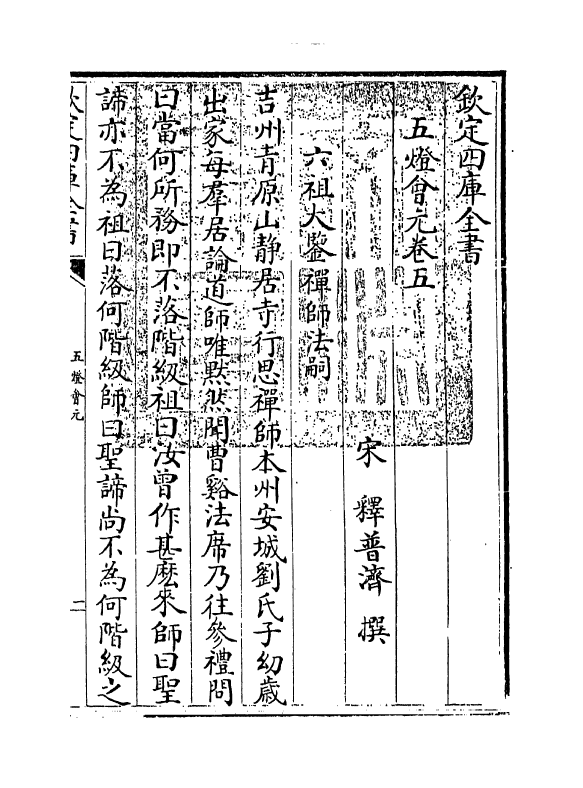 欽定四庫全書
五燈會元卷五
宋 釋普濟 撰
六祖大鑒禪師法嗣
吉州青原山靜居寺行思禪師本州安城劉氏子幼歲
出家每羣居論道師唯黙然聞曹谿法席乃往參禮問
曰當何所務即不落階級祖曰汝曾作甚麽來師曰聖
諦亦不為祖曰落何階級師曰聖諦尚不為何階級之
欽定四庫全書
五燈會元